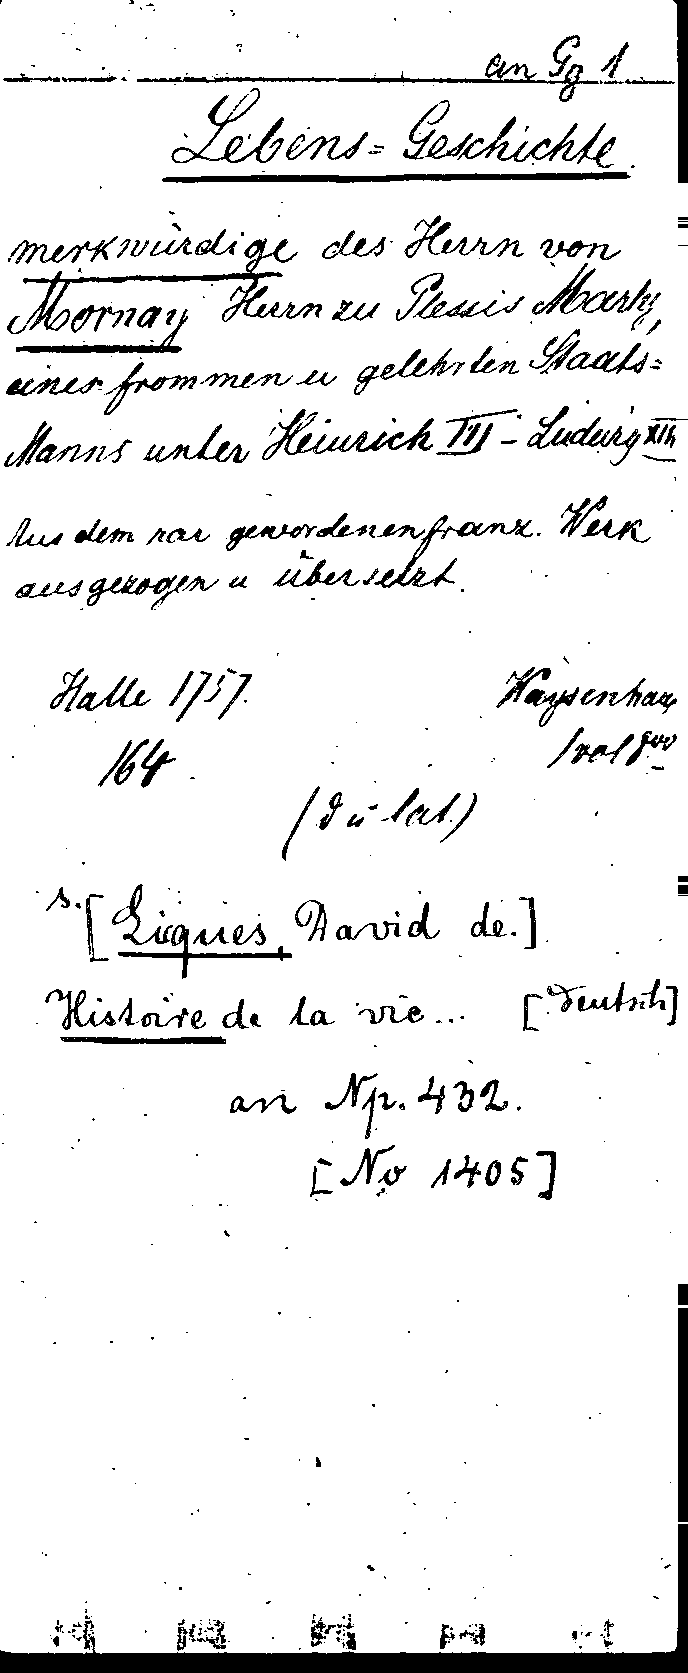 an Gg 1
Lebens=Geschichte.
merkwürdige des Herrn von
Mornay Herrn zu Plessis Marly,
eines frommen u gelehrten Staats=
Manns unter Heinrich III – Ludwig XIII
Aus dem rar gewordenen franz. Werk
ausgezogen u übersetzt.
Halle 1757. Waysenhaus
164 1 vol 8vo
(d u lat.)
s. [Liques, David de.]
Histoire de la vie... [deutsch]
an Np. 432.
[No 1405]